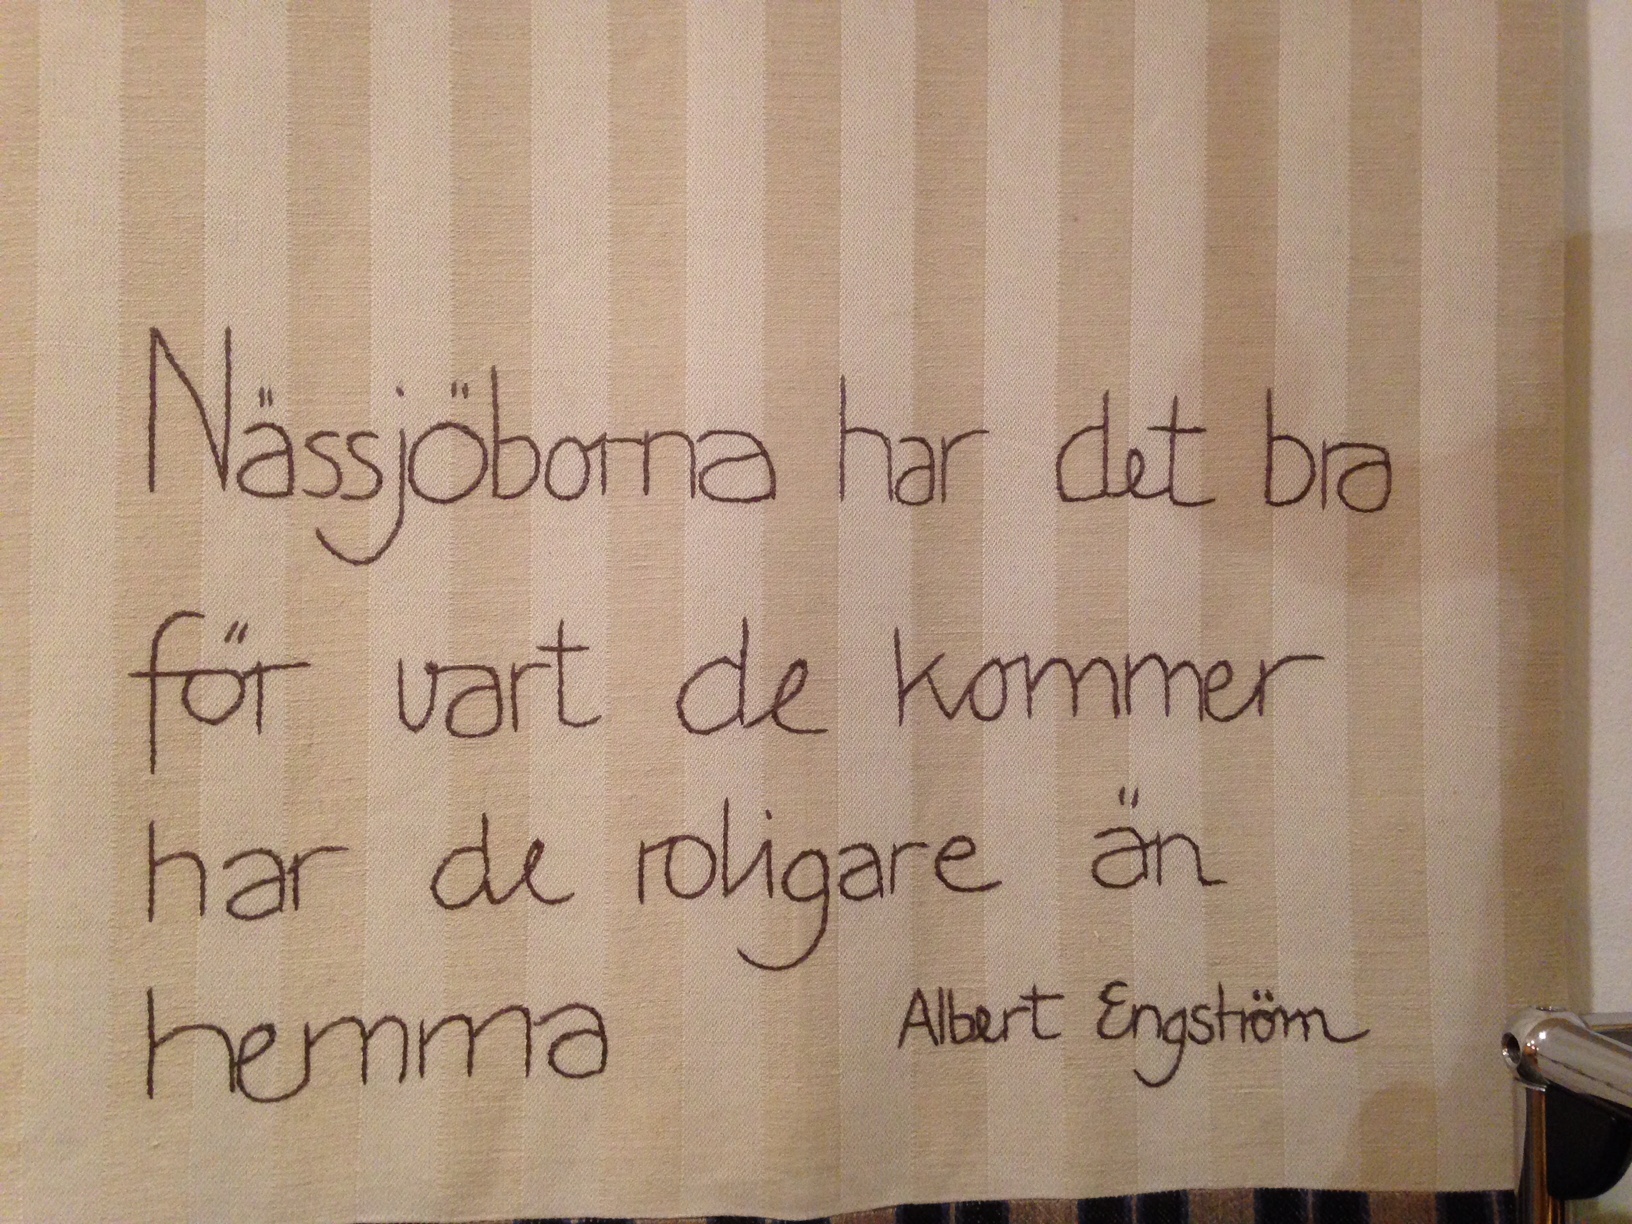 Nässjöborna har det bra
för vart de kommer
har de roligare än
hemma
Albert Engström